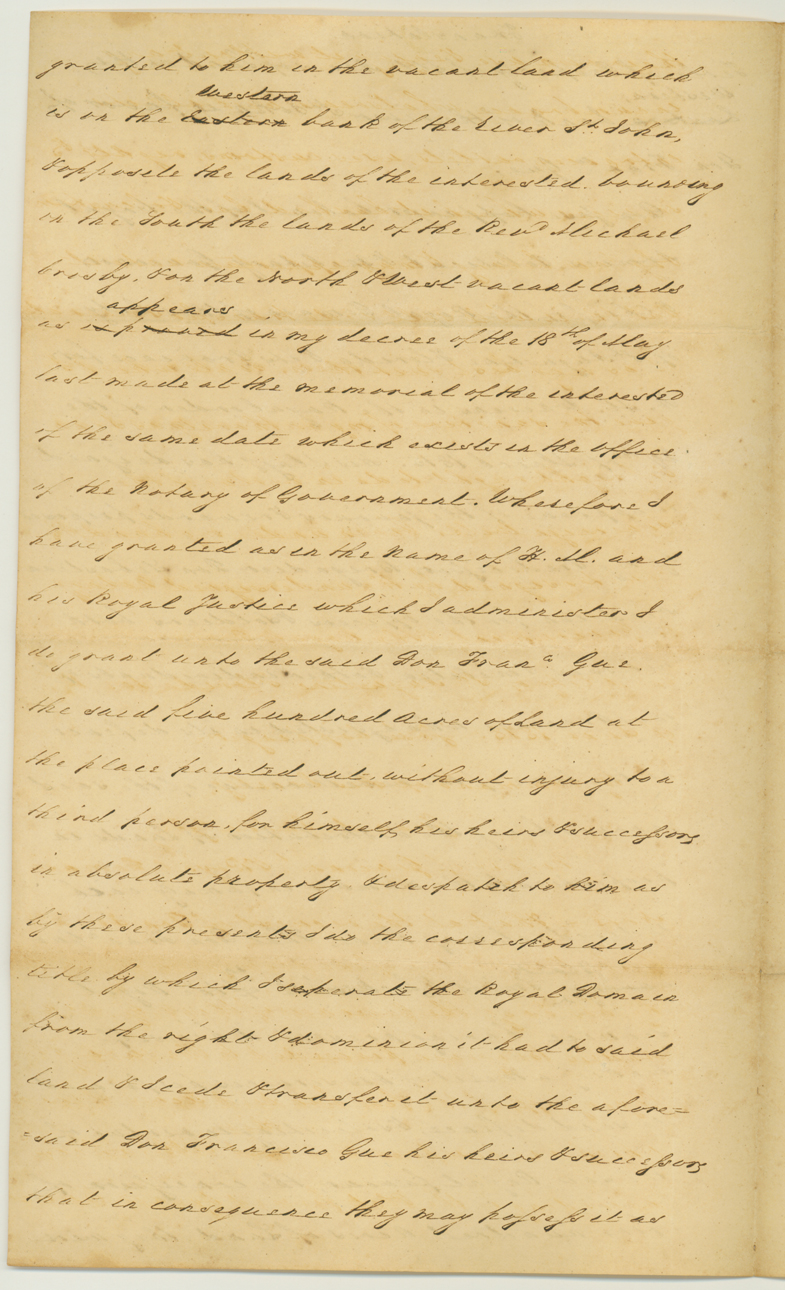 granted to him in the vacant land which
Western
is on the eastern bank of the River St. John,
& opposite the lands of the interested. bounding
on the South the lands of the Revd Michael
Crosby, & on the North & West vacant lands
appears
as is proved in my decree of the 18th of May
last made at the memorial of the interested
of the same date which exists in the office
of the Notary of Government. Wherefore I
have granted as in the Name of H. M. and
his Royal Justice which I administer I
do grant unto the said Don Franco. Gue.
the said five hundred Acres of Land at
the place pointed out, without injury to a
third person, for himself, his heirs & successors
in absolute property & despatch to him as
by these presents I do the corresponding
title by which I seperate the Royal Domain
from the right & dominion it had to said
land & I cede & transfer it unto the afore=
=said Don Francisco Gue his heirs & successors
that in consequence they may possess it as